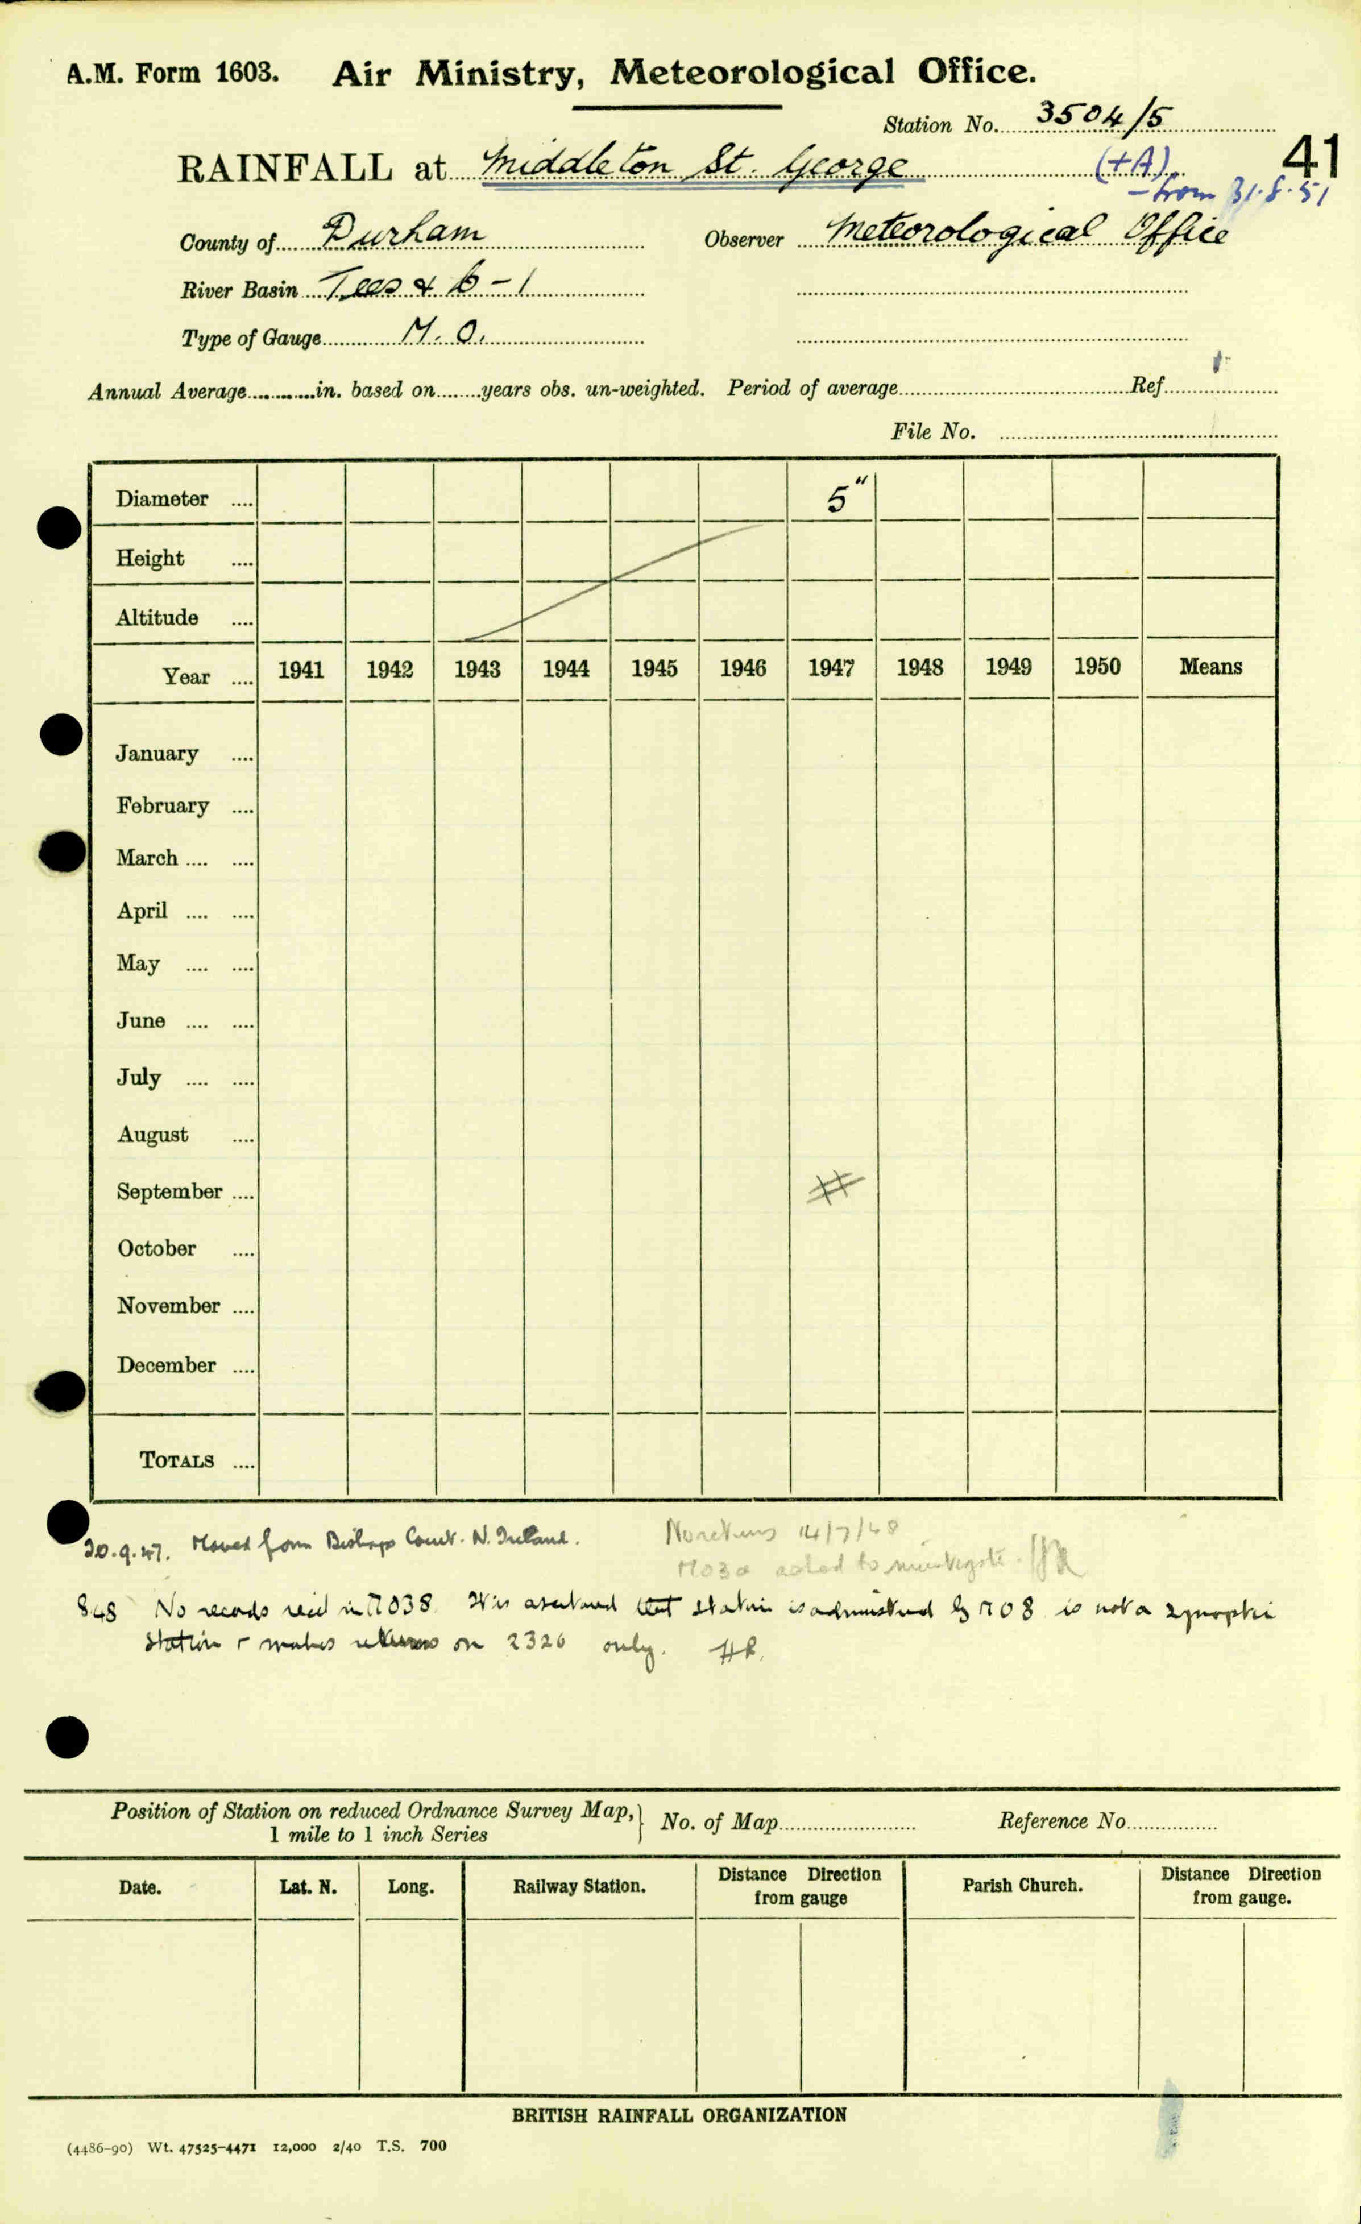 A.M. Form 1603. Air Ministry, Meteorological Office.
Station No. 3504/5
RAINFALL at Middleton St. George (+A) 41
– from 31.8.51
County of Durham Observer Meteorological Office
River Basin Tees & b – 1
Type of Gauge M.O.
Annual Average in. based on years obs. un-weighted. Period of average Ref
File No.
Diameter 5"
Height
Altitude
Year 1941 1942 1943 1944 1945 1946 1947 1948 1949 1950 Means
January
February
March
April
May
June
July
August
September
October
November
December
TOTALS
20.9.47. Moved from Bishops Court. N. Ireland. No returns 14/7/48
MO3a asked to investigate. HR
848 No records rec'd in MO38. It is ascertained that station is administered by MO8 is not a synoptic
station & makes returns on 2326 only. HR.
Position of Station on reduced Ordnance Survey Map, No. of Map Reference No.
1 mile to 1 inch Series
Date. Lat. N. Long. Railway Station. Distance Direction from gauge Parish Church. Distance Direction from gauge.
BRITISH RAINFALL ORGANIZATION
(4486-90) Wt. 47525-4471 12,000 2/40 T.S. 700